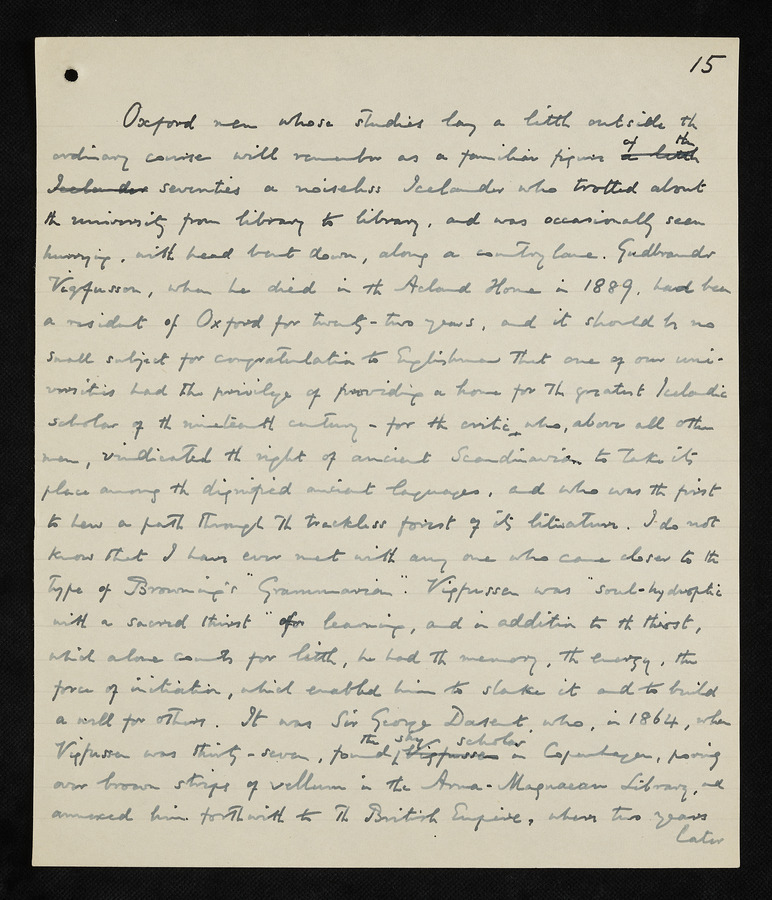 15
Oxford men whose studies lay a little outside the
ordinary course will remember as a familiar figure of the a little
Icelander seventies a noiseless Icelander who trotted about
the university from library to library, and was occasionally seen
hurrying, with head bent down, along a country lane. Gudbrandr
Vigfusson, when he died in the Acland Home in 1889, had been
a resident of Oxford for twenty-two years, and it should be no
small subject for congratulation to Englishmen that one of our uni-
versities had the privilege of providing a home for the greatest Icelandic
scholar of the nineteenth century - for the critic, who, above all other
men, vindicated the right of ancient Scandinavian to take its
place among the dignified ancient languages, and who was the first
to hew a path through the trackless forest of its literature. I do not
know that I have ever met with any one who came closer to the
type of Browning's "Grammarian". Vigfusson was "soul-hydroptic
with a sacred thirst" for learning, and in addition to the thirst,
which alone counts for little, he had the memory, the energy, the
force of initiation, which enabled him to slake it and to build
a well for others. It was Sir George Dasent, who, in 1864, when
Vigfusson was thirty-seven, found the shy scholar Vigfusson in Copenhagen, poring
over brown strips of vellum in the Arna-Magnaean Library, and
annexed him forthwith to the British Empire, where two years
later